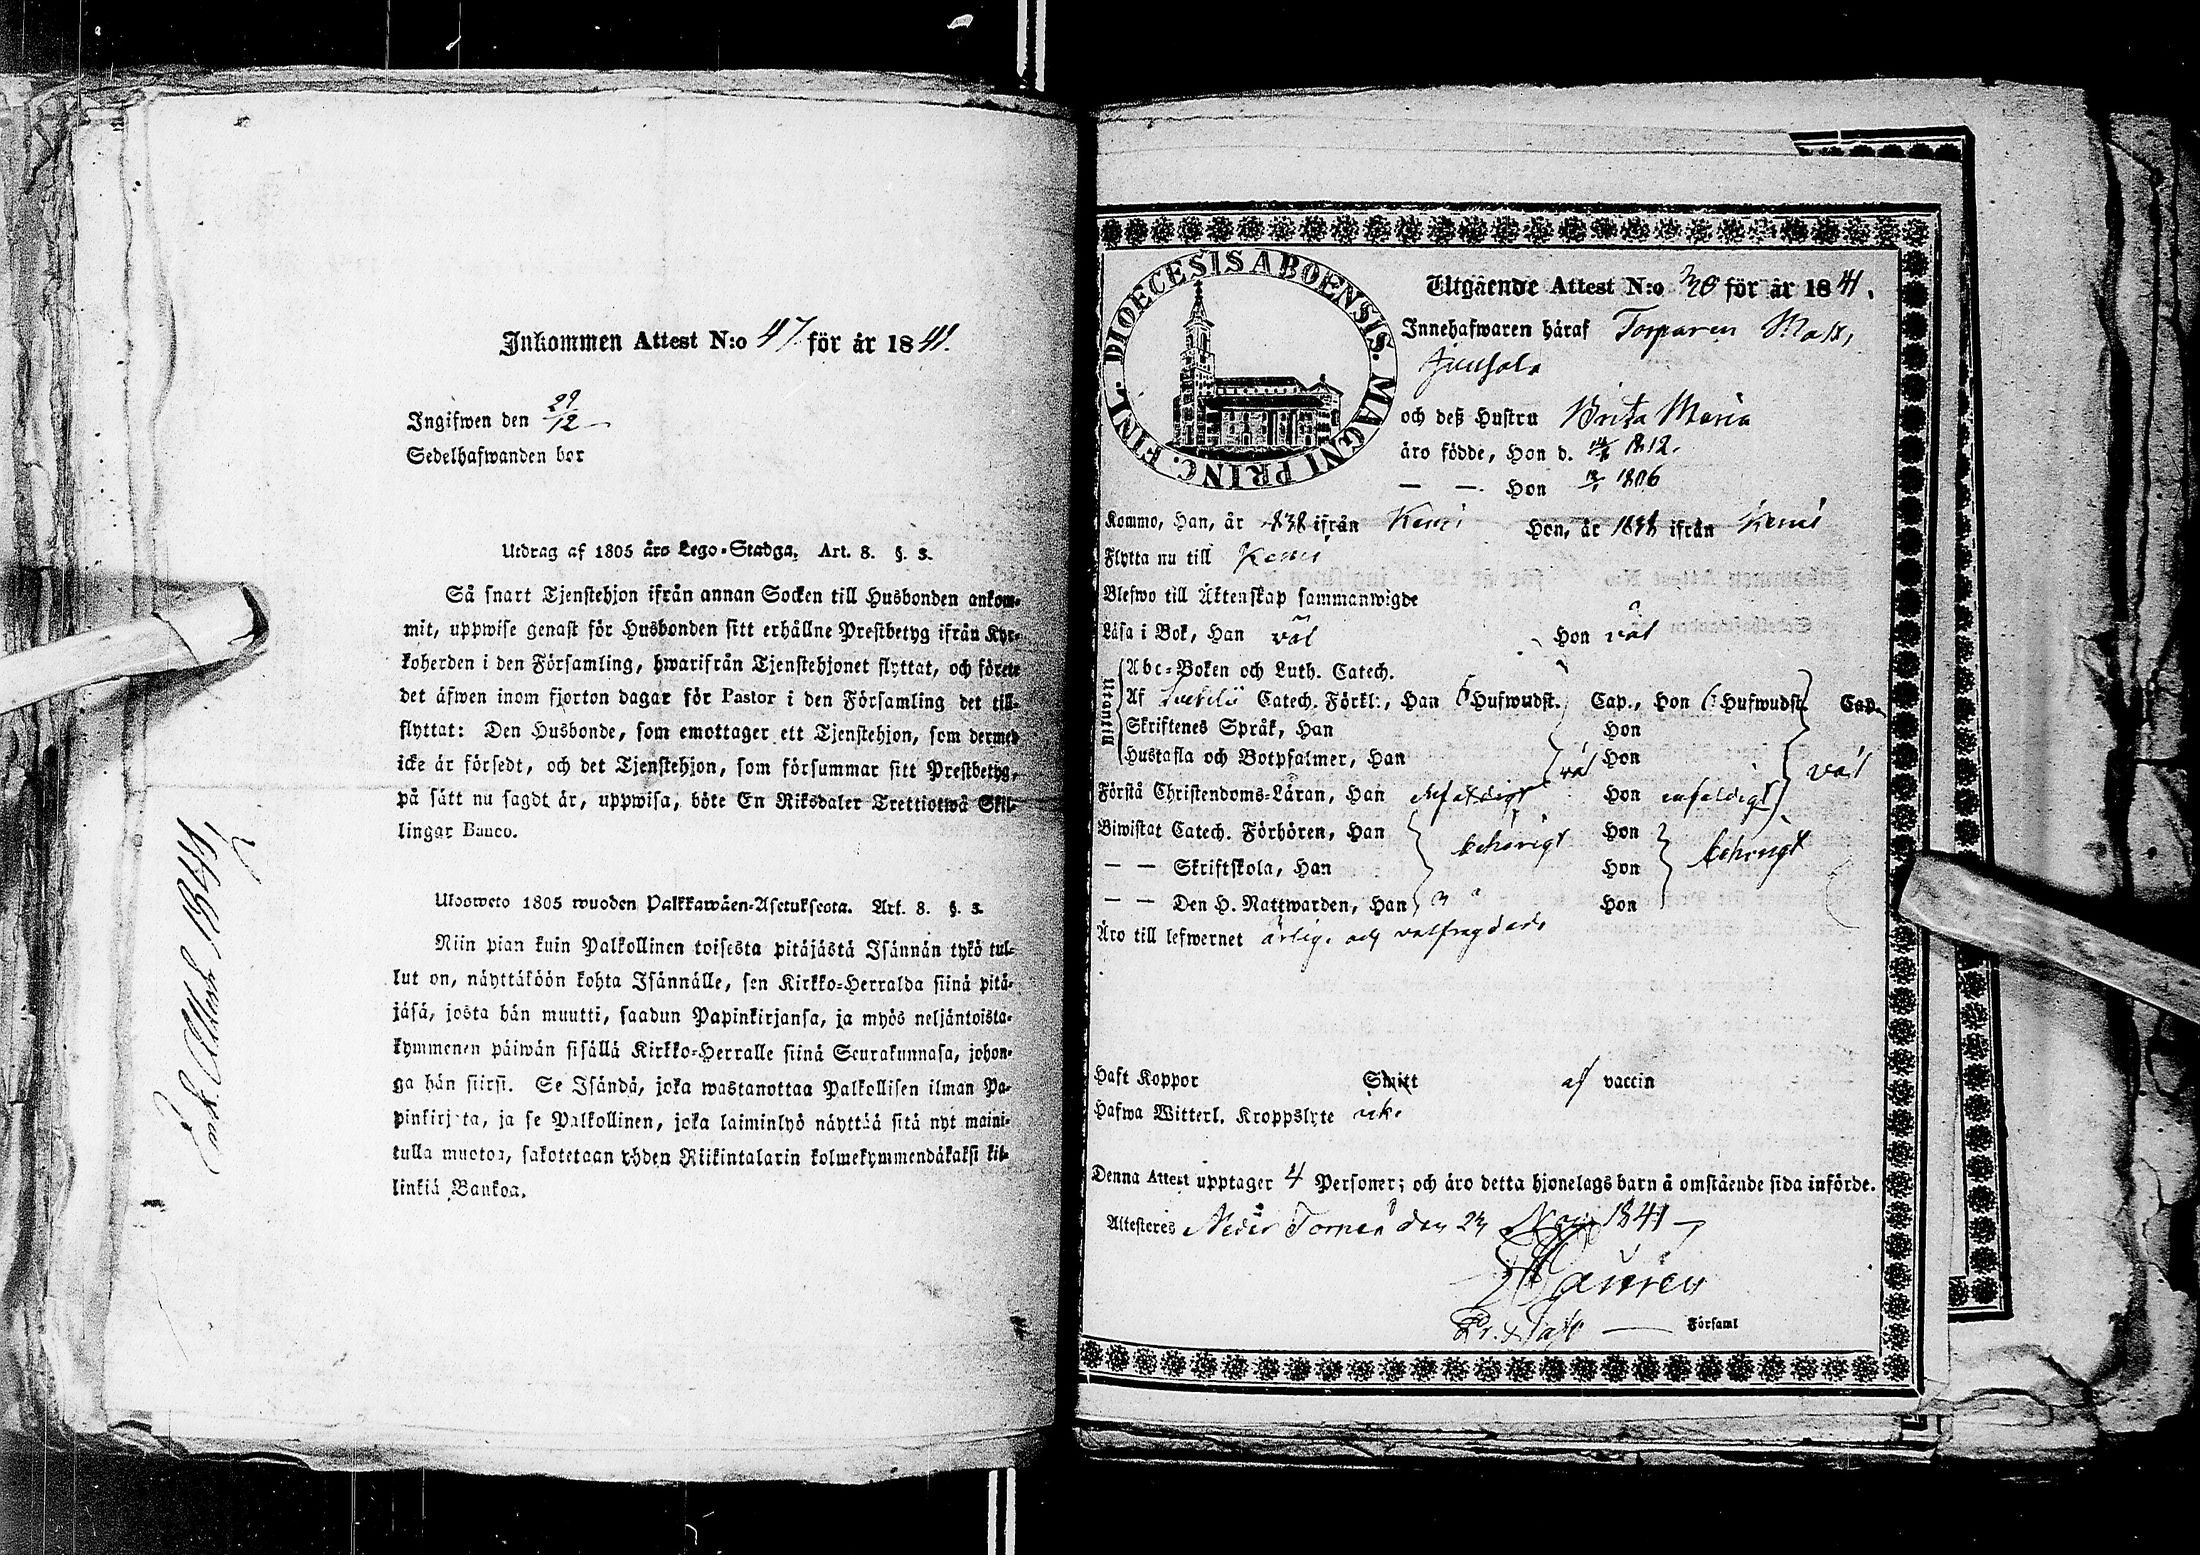 Inkommen Attest N:o 47 för år 1841.
Ingifwen den 29/12
Sedelhafwanden bor
Utdrag af 1805 års Lego-Stadga, Art. 8. §. 3.
Så snart Tjenstehjon ifrån annan Socken till Husbonden ankom-
mit, uppwise genast för Husbonden sitt erhållne Prestbetyg ifrån Kyr-
koherden i den Församling, hwarifrån Tjenstehjonet flyttat, och förete
det äfwen inom fjorton dagar för Pastor i den Församling det till-
flyttat: Den Husbonde, som emottager ett Tjenstehjon, som dermed
icke är försedt, och det Tjenstehjon, som försummar sitt Prestbetyg,
på sätt nu sagdt är, uppwisa, böte En Riksdaler Trettiotwå Skil-
lingar Banco.
Ulosweto 1805 wuoden Palkkawäen-Asetuksesta. Art. 8. §. 3.
Niin pian kuin Palkollinen toisesta pitäjästä Isännän tykö tul-
lut on, näyttäköön kohta Isännälle, sen Kirkko-Herralda siinä pitä-
jäsä, josta hän muutti, saadun Papinkirjansa, ja myös neljäntoista-
kymmenen päiwän sisällä Kirkko-Herralle siinä Seurakunnasa, johon-
ga hän siirsi. Se Isändä, joka wastanottaa Palkollisen ilman Pa-
pinkirjata, ja se Palkollinen, joka laiminlyö näyttää sitä nyt maini-
tulla muotoa, sakotetaan yhden Riikintalarin kolmekymmendäkaksi kil-
linkiä Bankoa.
DIOECESIS ABOENSIS. MAGNI PRINC. FINL.
Utgående Attest N:o 30 för år 1841.
Innehafwaren häraf Torparen Matts
Junsola
och deß Hustru Brita Maria
äro födde, Han d. 1812.
— — Hon 1806
Kommo, Han, år 1838 ifrån Kemi Hon, år 1838 ifrån Kemi
Flytta nu till Kemi
Blefwo till Äktenskap sammanwigde
Läsa i Bok, Han väl Hon väl
Utantill
Abc-Boken och Luth. Catech.
Af Svebelii Catech. Förkl:, Han 6 Hufwudst. Cap., Hon 6 Hufwudst. Cap.
Skriftenes Språk, Han Hon
Hustafla och Botpsalmer, Han väl Hon väl
Förstå Christendoms-Läran, Han enfaldigt Hon enfaldigt
Biwistat Catech. Förhören, Han behörigt Hon behörigt
— — Skriftskola, Han Hon
— — Den H. Nattwarden, Han Hon
Äro till lefwernet ärlige och välfrägdade
Haft Koppor Smitt af vaccin
Hafwa Witterl. Kroppslyte icke
Denna Attest upptager 4 Personer; och äro detta hjonelags barn å omstående sida införde.
Attesteres Neder Torneå den 23 Nov. 1841
Församl